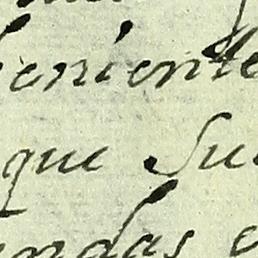 eniente
que Su
endas